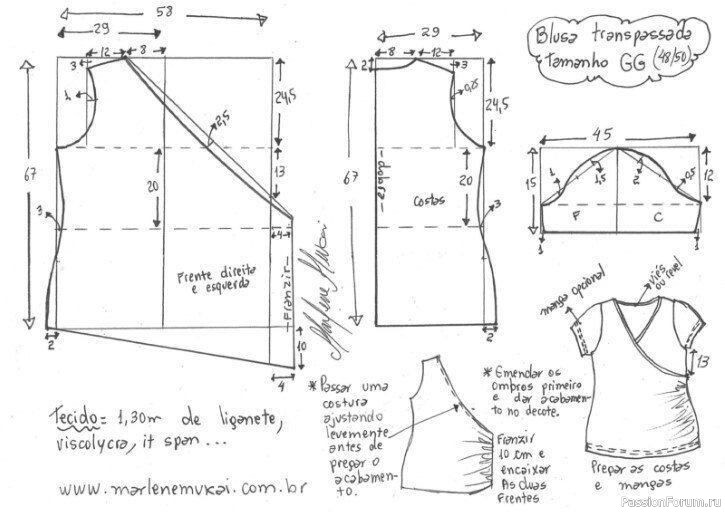 58
29
12
8
3
1
2,5
24,5
67
20
13
3
4
Frente direita
e esquerda
Franzir
2
10
4
Marlene Mukai
29
8
12
2
3
0,25
24,5
67
dobra
20
costas
3
2
Blusa transpassada
tamanho GG (48/50)
45
15
1
1,5
2
0,5
12
F
C
1
1
manga opcional
viés ou revel
13
Preparar as costas
e mangas
* Passar uma
costura
ajustando
levemente
antes de
pregar o
acabamento.
* Emendar os
ombros primeiro
e dar acabamento
no decote.
Franzir
10 cm e
encaixar
As duas
frentes
Tecido = 1,30m de liganete,
viscolycra, it span ...
www.marlenemukai.com.br
PassionForum.ru